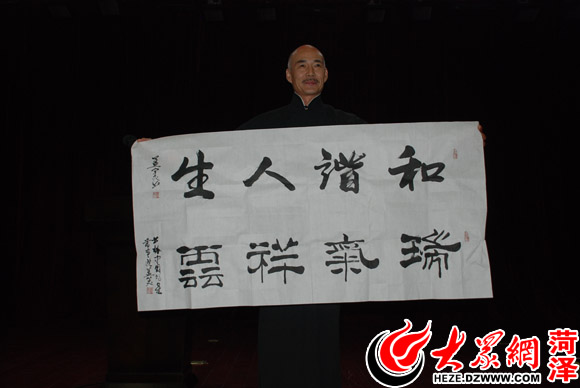 和諧人生
瑞氣祥雲
大眾網
菏泽
HEZE.DZWWW.COM